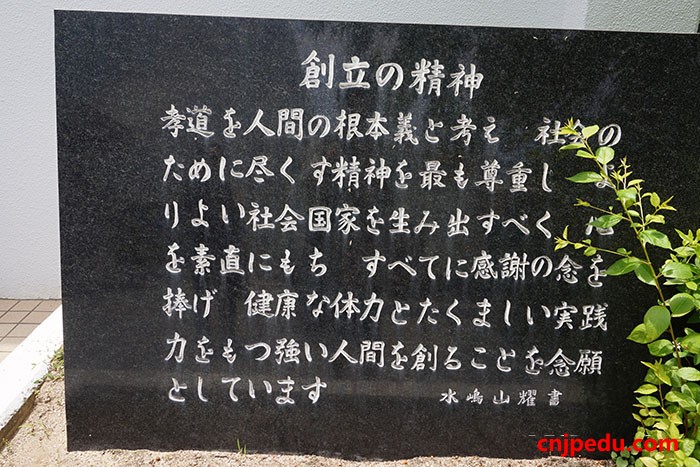 創立の精神
孝道を人間の根本義と考え 社会の
ために尽くす精神を最も尊重し よ
りよい社会国家を生み出すべく 心
を素直にもち すべてに感謝の念を
捧げ 健康な体力とたくましい実践
力をもつ強い人間を創ることを念願
としています
水嶋山耀書
cnjpedu.com